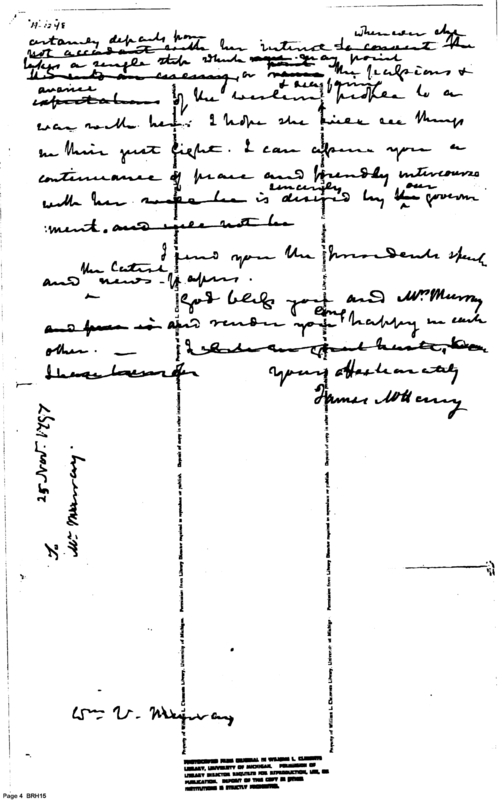 certainly departs from whenever she
not accordant with her interest to convert the
takes a single step which may point
or the passions &
avarice of the western people to a
war with her. I hope she will see things
in their just light. I can assure you a
continuance of peace and friendly intercourse
with her is sincerely desired by our govern
:ment. and will not be
I send you the Presidents speech
and the latest news-papers.
God bless you and Mrs Murray
and render you long happy in each
other. —
Yours affectionately
James McHenry
25 Nov. 1797
To
Mr Murray.
Wm V. Murray
Property of William L. Clements Library, University of Michigan. Permission from Library Director required to reproduce or publish. Deposit of copy in other institutions
PHOTOCOPIED FROM ORIGINAL IN WILLIAM L. CLEMENTS
LIBRARY, UNIVERSITY OF MICHIGAN. PERMISSION OF
LIBRARY DIRECTOR REQUIRED FOR REPRODUCTION, USE, OR
PUBLICATION. DEPOSIT OF THIS COPY IN OTHER
INSTITUTIONS IS STRICTLY PROHIBITED.
Page 4 BRH15